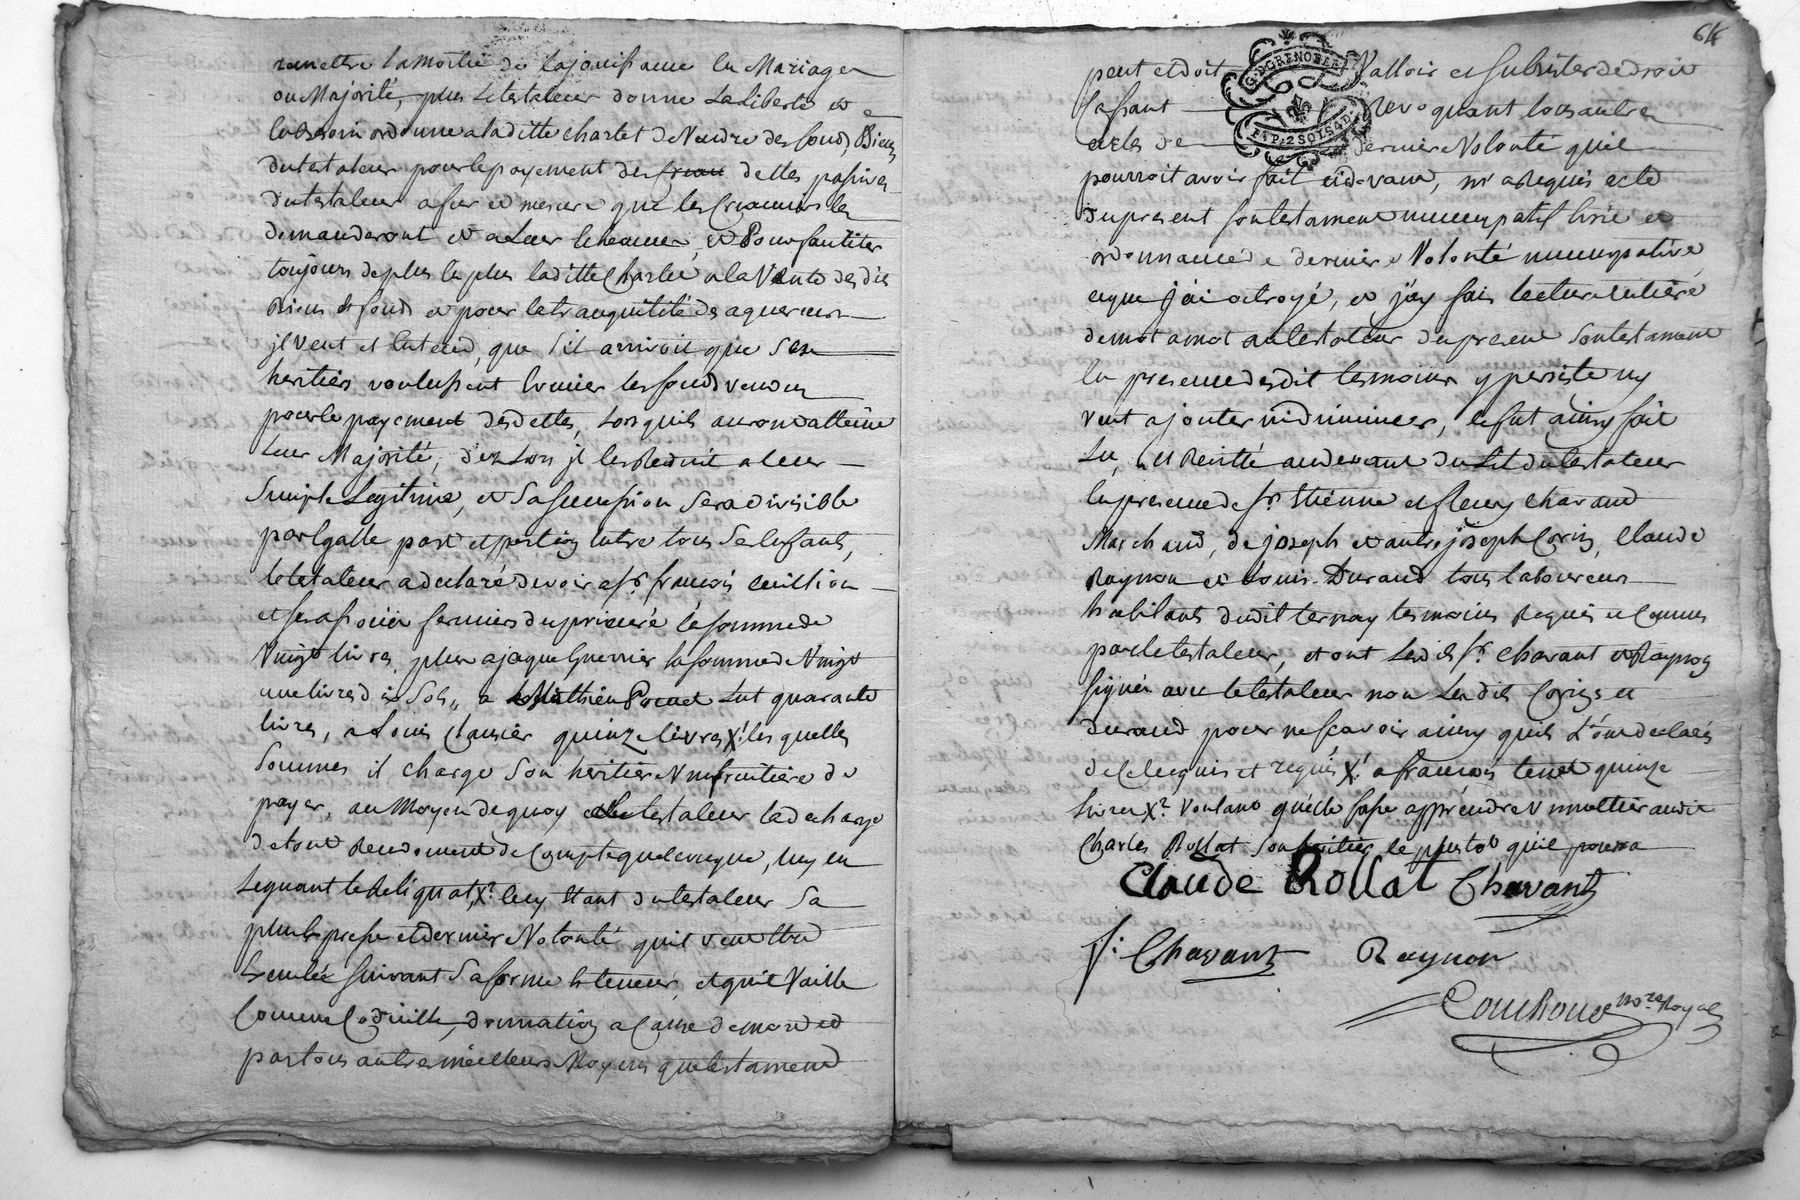 remettre la moitié de la jouissance en Mariage
ou Majorité, plus le testateur donne la liberté et
en besoin ordonne a la ditte Charlet de Vendre des fonds, Biens
du testateur pour le payement des dettes passives
du testateur a fur et mesure que les Creanciers les
demanderont et a leur echeance, et Pour faciliter
toujours de plus en plus la ditte Charlet, a la Vente des dits
Biens et fonds et pour la tranquilité des aquereurs
jl veut et entend, que s'il arrivoit que ses
heritiers voulussent les fonds vendus
pour le payement des dettes, lors quils auront atteint
leur Majorité, dez Lors jl les Reduit a leur
Simple Legitime, et Sa succession Sera divisible
par Egalle part et portion entre tous Ses Enfants,
le testateur a declaré devoir a sr. francois
et ses associés fermiers du prieuré la somme de
Vingt livres, plus a jaque Guerrier la somme de Vingt
une livres dix Sols, a Mathieu quarante
livres, a Louis Clausier quinze livres X! les quelles
Sommes il charge Son heritiere Vsufruitiere de
payer, au Moyen de quoy le testateur la decharge
de tout Rendement de Compte quelconque, luy en
Leguant le Reliquat, X? Cecy Etant du testateur Sa
plus Expresse et derniere Volonté quil veut Etre
Executée suivant Sa forme et teneur, et quil Vaille
Comme Codicille, donnation a Cause de mort et
par tous autres meilleurs Moyens que testament
64
peut et doit Valloir et Subsister de droit
G. D GRENOBLE
PAP. 2 SOLS 4 D
Cassant Revoquant tous autres
actes de derniere Volonté quil
pourroit avoir fait cidevant, m'a Requis acte
du present son testament nuncupatif et
ordonnance de derniere Volonté nuncupative,
ce que j'ai octroyé, et j'ay fait lecture entiere
de mot a mot au testateur du present Son testament
En presence des dit temoins y persiste ny
veut ajouter ni diminuer, ce fut ainsy fait
Lu, et Recitté au devant du Lit du testateur
En presence de sr. Etienne et fleury Chavant
Marchand, de joseph et autre joseph Corin, Claude
Raynon et Louis Durand tous laboureurs
habitants dudit ternay temoins Requis et Connus
par le testateur, et ont Lesdits sr. Chavant et Raynon
signés avec le testateur non Lesdits Corins et
durand pour ne scavoir ainsy quils L'ont declarés
de Ce Enquis et requis X! a francois quinze
Livres X? Voulant quelle fasse apprendre Vn mettier audit
Charles Rollat Son heritier le plustot quil pourra
Claude Rollat Chavant
f: Chavant Raynon
no.re Royal